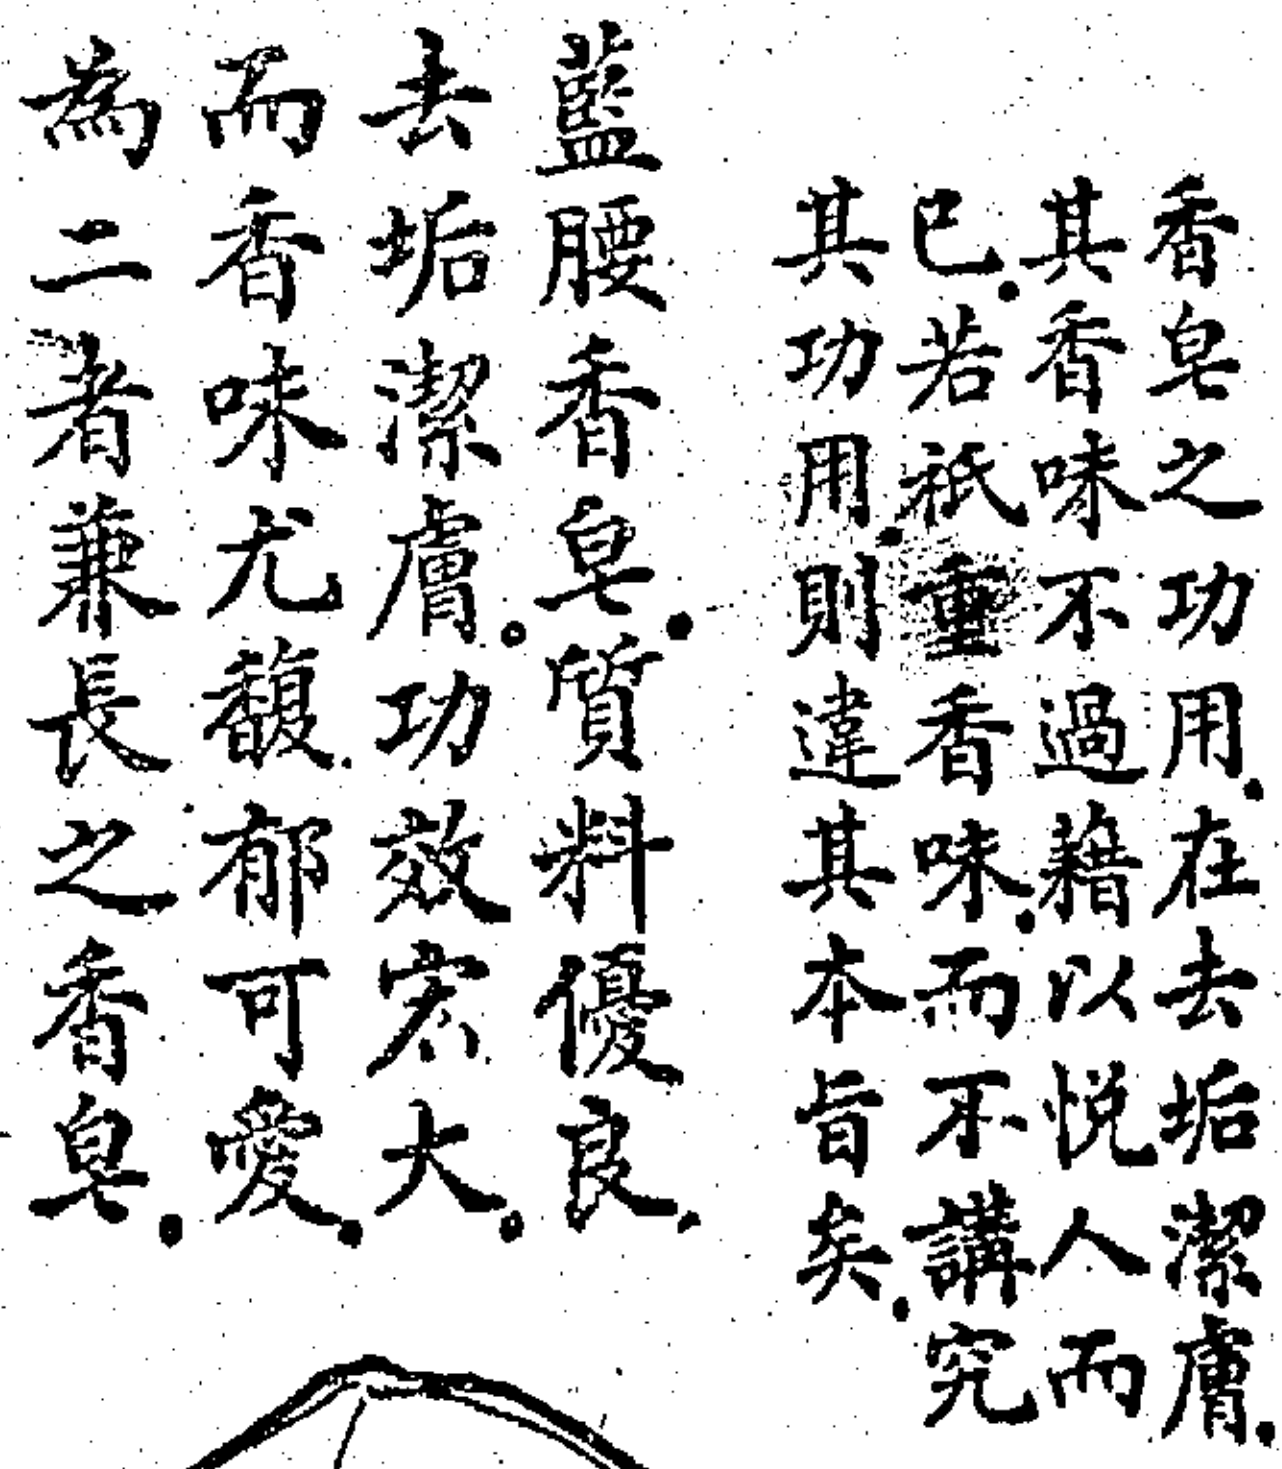 香皂之功用.在去垢潔膚.
其香味不過藉以悦人而
已.若祇重香味.而不講究
其功用.則違其本旨矣.
藍腰香皂.質料優良.
去垢潔膚。功效宏大。
而香味尤馥郁可愛.
為二者兼長之香皂.